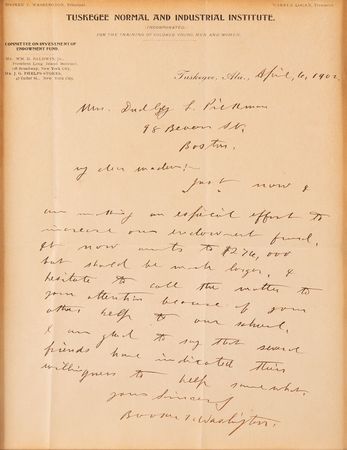 BOOKER T. WASHINGTON, Principal. WARREN LOGAN, Treasurer.
TUSKEGEE NORMAL AND INDUSTRIAL INSTITUTE.
(INCORPORATED)
FOR THE TRAINING OF COLORED YOUNG MEN AND WOMEN.
COMMITTEE ON INVESTMENT OF
ENDOWMENT FUND.
MR. WM. H. BALDWIN, JR.,
President Long Island Railroad,
128 Broadway, New York City.
MR. J. G. PHELPS-STOKES,
47 Cedar St., New York City.
Tuskegee, Ala., April, 6, 1902
Mrs. Dudley L. Pickman
98 Beacon St,
Boston.
My dear madam:-
Just now I
am making an especial effort to
increase our endowment fund,
It now amts to $276,000
but should be much larger. I
hesitate to call the matter to
your attention because of your
other help to our school.
I am glad to say that several
friends have indicated their
willingness to help somewhat.
Yours Sincerely
Booker T. Washington.